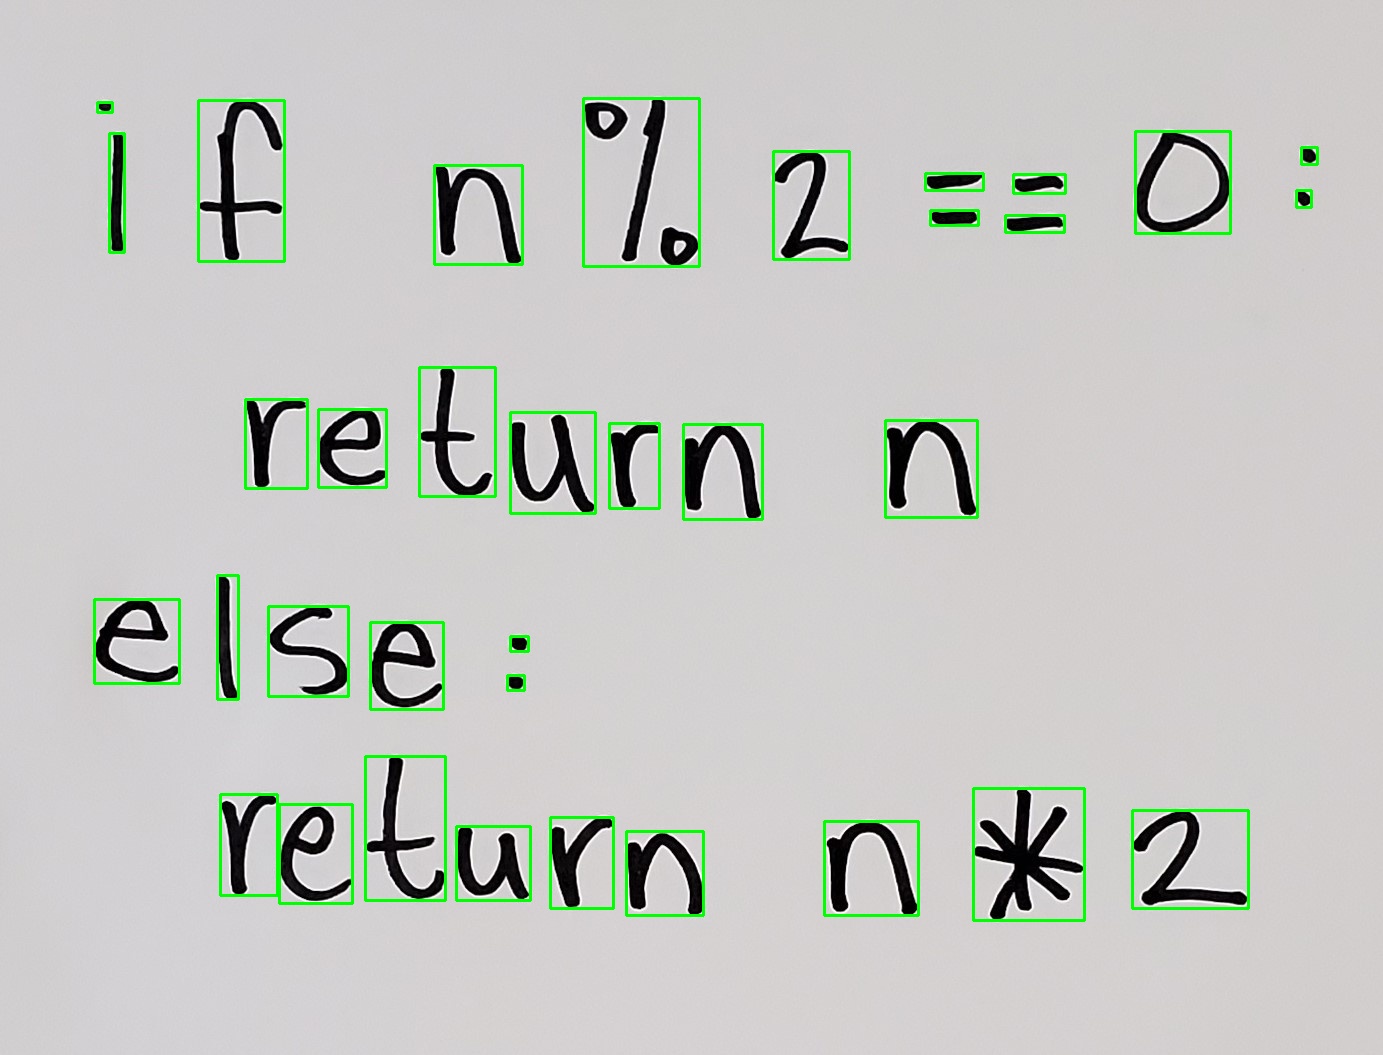 if n%2==0:
return n
else:
return n*2